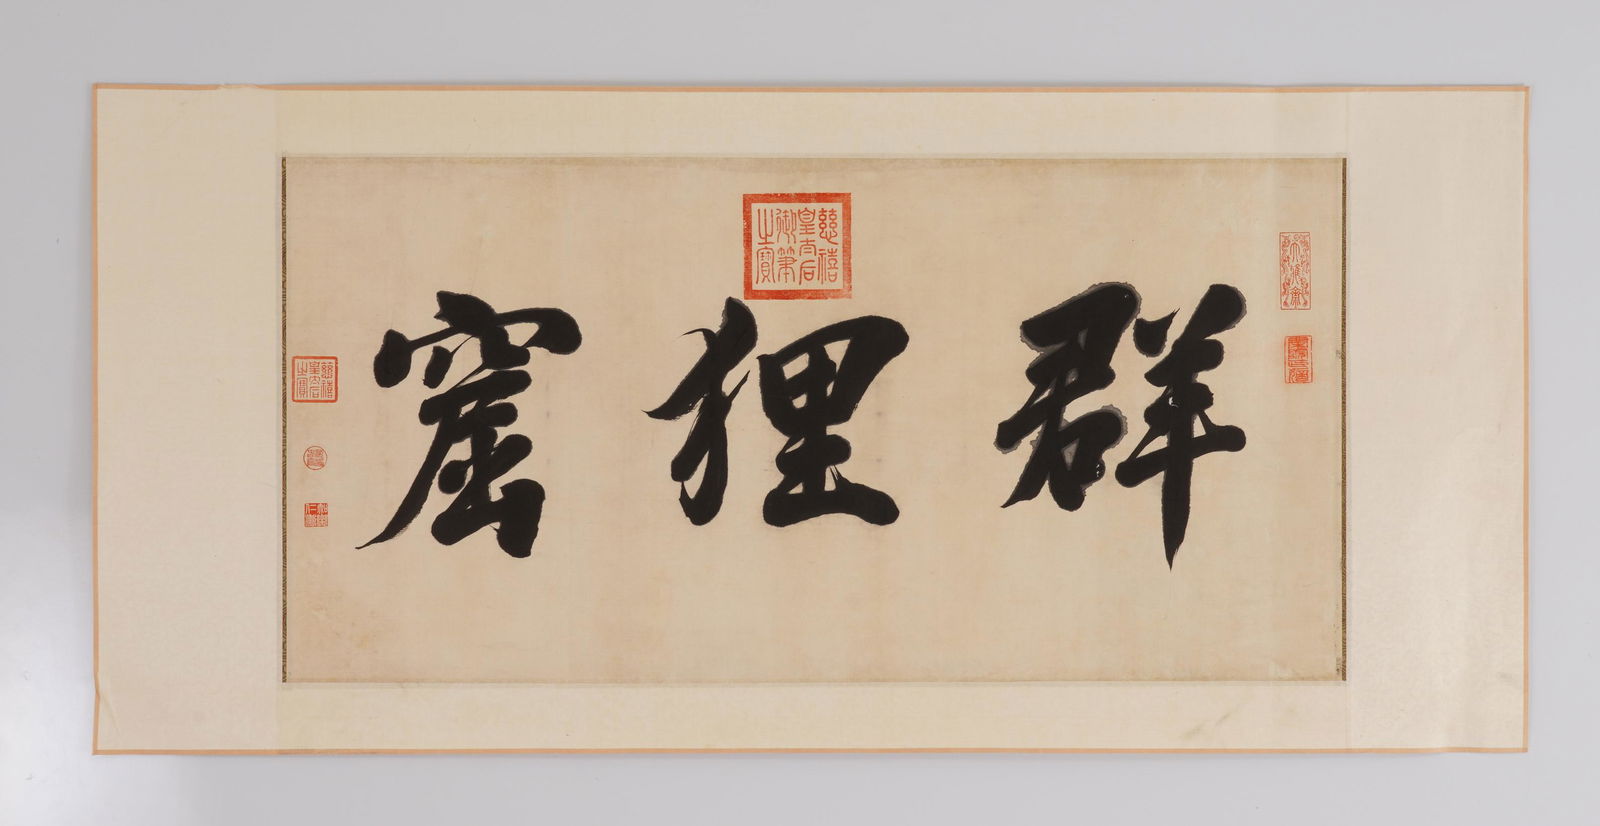 群狸窟
慈禧皇太后御筆之寶
慈禧皇太后之寶
大雅齋